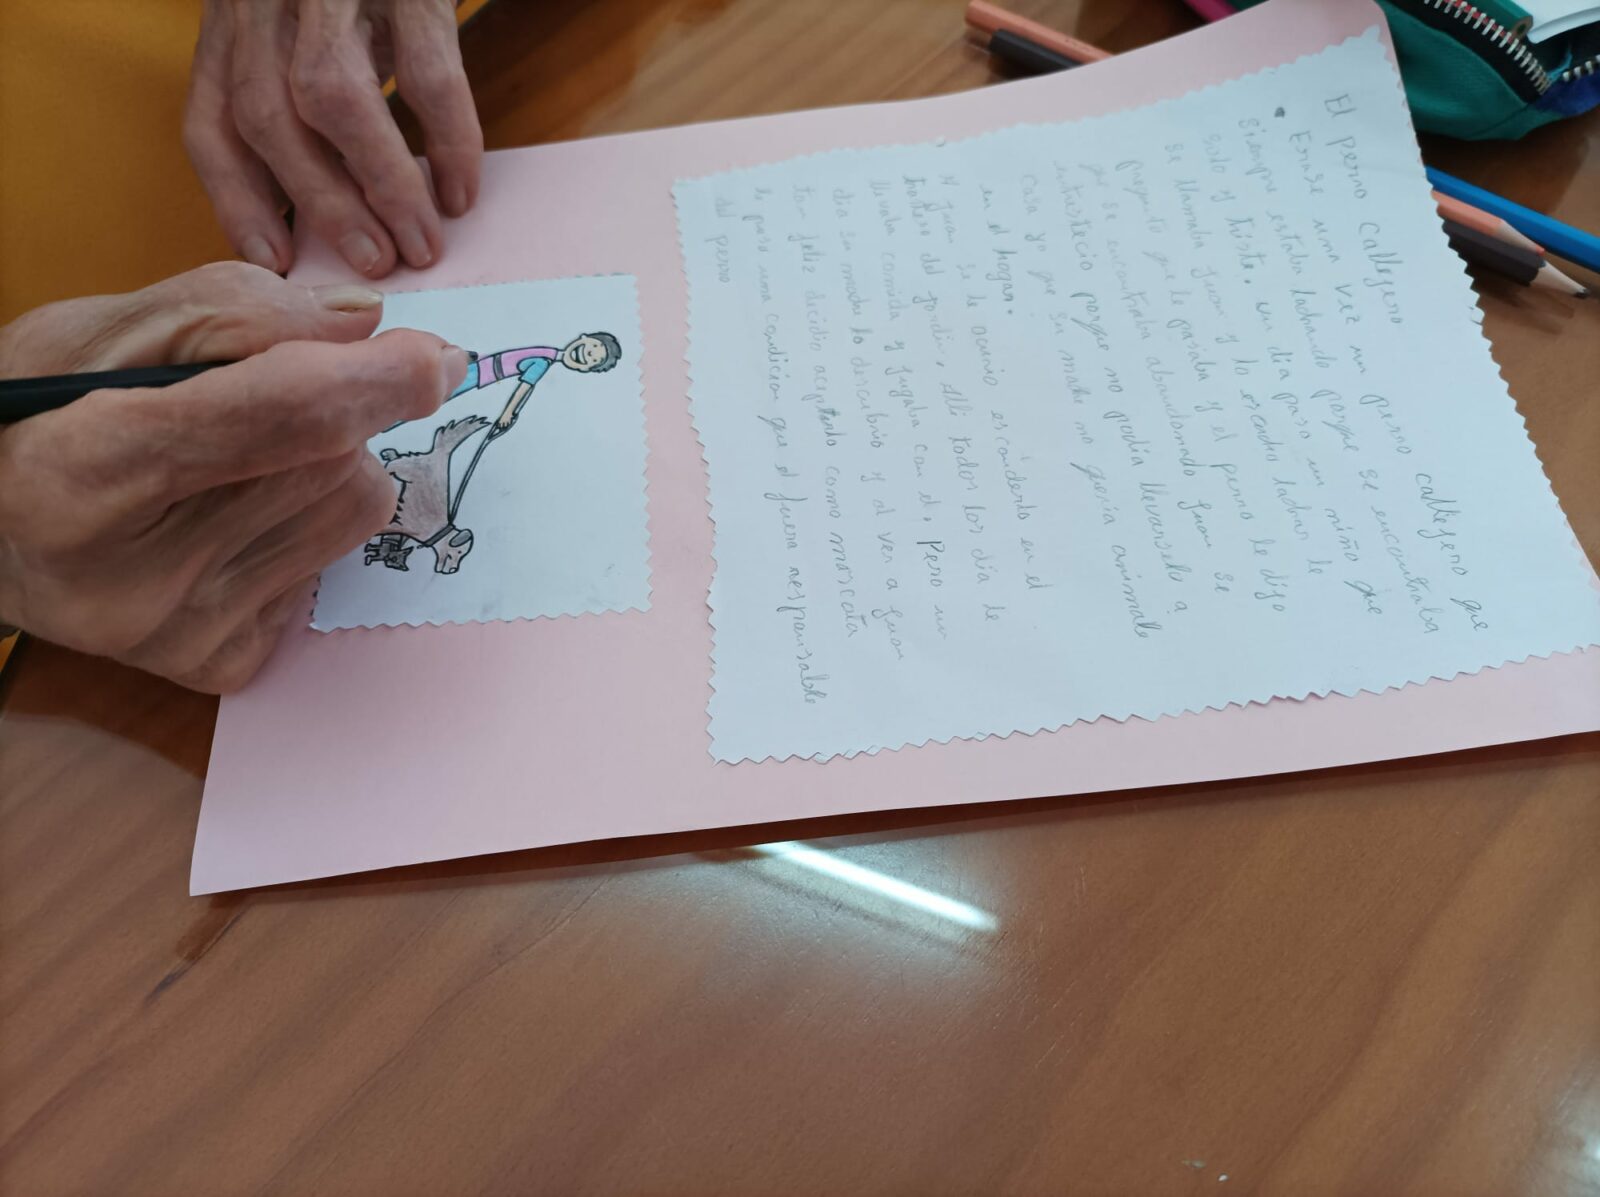 El perro callejero
Erase una vez un perro callejero que
siempre estaba ladrando porque se encontraba
solo y triste. un día paso un niño que
se llamaba Juan y lo escucho ladrar le
pregunto que le pasaba y el perro le dijo
que se encontraba abandonado Juan se
entristecio porque no podia llevarselo a
casa ya que su madre no queria animale
en el hogar.
A Juan se le ocurrio esconderlo en el
trastero del jardin, Alli todos los día le
llevaba comida y jugaba con el. Pero un
día su madre lo descubrio y al ver a Juan
tan feliz decidio aceptarlo como mascota
le puso una condicion que el fuera responsable
del perro